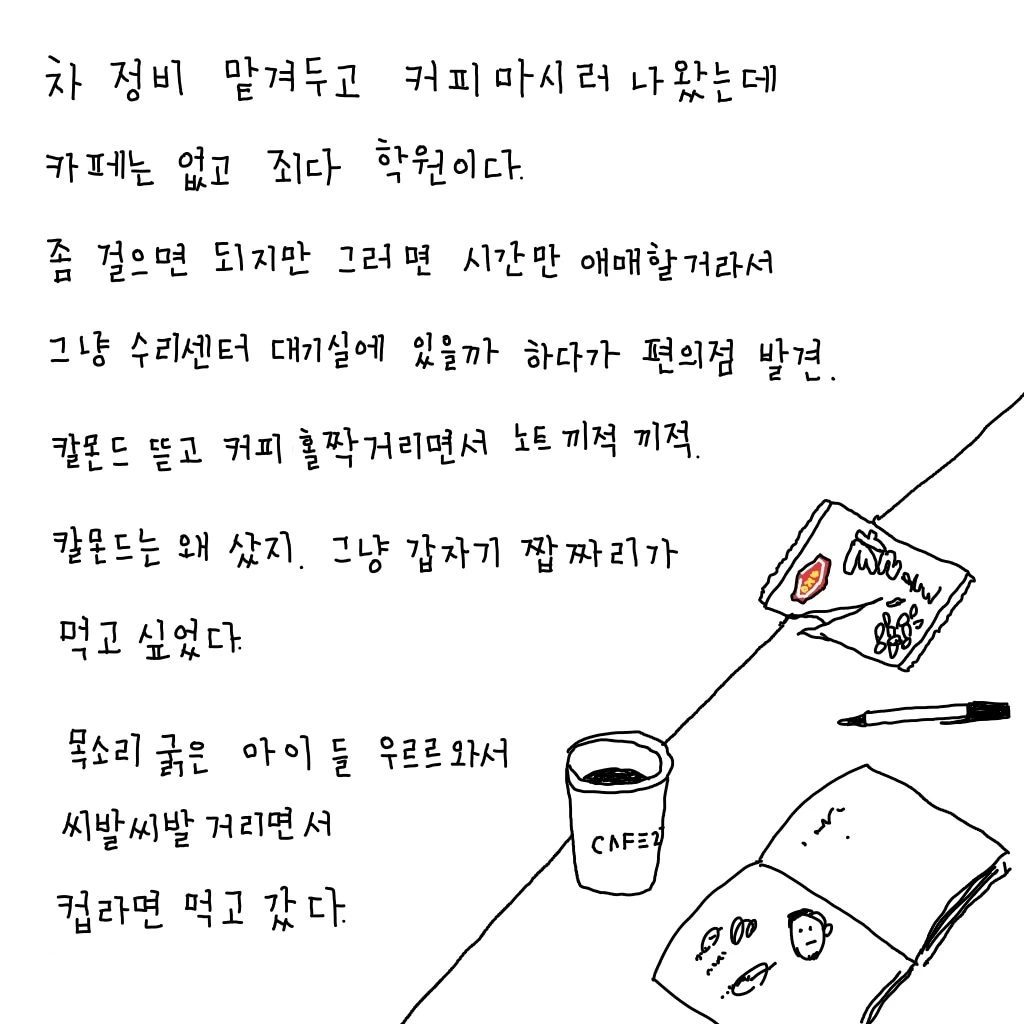 차 정비 맡겨두고 커피마시러 나왔는데
카페는 없고 죄다 학원이다.
좀 걸으면 되지만 그러면 시간만 애매할거라서
그냥 수리센터 대기실에 있을까 하다가 편의점 발견.
칼몬드 뜯고 커피 홀짝거리면서 노트 끼적 끼적.
칼몬드는 왜 샀지. 그냥 갑자기 짭짜리가
먹고 싶었다.
목소리 굵은 아이들 우르르와서
씨발씨발 거리면서
컵라면 먹고 갔다.
CAFE25